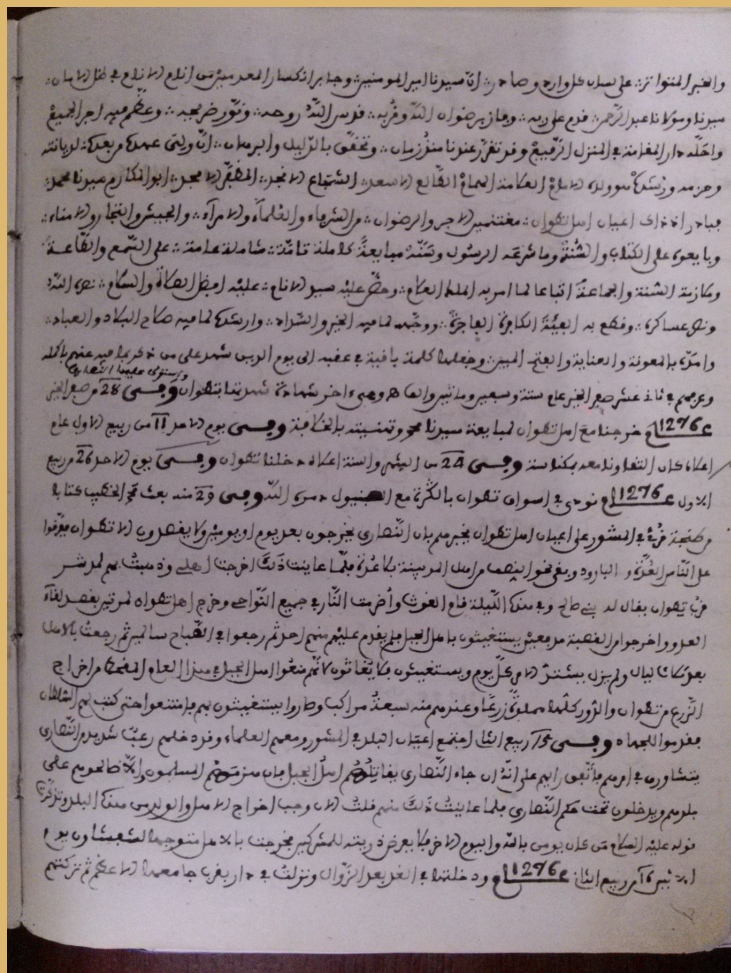 والخبر المتواتر على لسان كل وارد وصادر ان سيدنا امير المومنين وجابر انكسار المعدمين من انام الانام في ظل الامان
سيدنا ومولانا عبد الرحمن قدم على ربه وفاز برضوان الله وقربه قدس الله روحه ونور ضريحه وعظم فيه اجر الجميع
واحله دار المقامة في المنزل الرفيع وقد تقرر عندنا منذ زمان وتحقق بالدليل والبرهان انه ولى عهده من بعده لديانته
وحزمه ورشده ولده العلامة الهمام الطالع الاسعد الشجاع الانجد المظفر الامجد ابو المكارم سيدنا محمد
فبادر اذ ذاك اعيان اهل تطوان مغتنمين الاجر والرضوان من الشرفاء والعلماء والامراء والجيش والتجار والامناء
وبايعوه على الكتاب والسنة وما شرعه الرسول وسنه مبايعة كاملة تامة شاملة عامة على السمع والطاعة
وملازمة السنة والجماعة اتباعا لما امر به الملك العلام وحض عليه سيد الانام عليه افضل الصلاة والسلام نصره الله
ونصر عساكره وقطع به الفئة الكافرة الفاجرة ووجهه لما فيه الخير والسداد وارشده لما فيه صلاح البلاد والعباد
وامده بالمعونة والعناية والفتح المبين وجعلها كلمة باقية في عقبه الى يوم الدين شهد على من ذكر بما فيه عنهم باكمله
وعرفهم في ثاني عشر صفر الخير عام ستة وسبعين وماتين والف وفي اخره شهادة شهدتها بتطوان وفي 28 من صفر الخير
عام 1276 خرجنا مع اهل تطوان لمبايعة سيدنا محمد وتهنيته بالخلافة وفي يوم الاحد 11 من ربيع الاول عام
اعلاه كان التقاونا معه بمكناسة وفي 24 من الشهر والسنة اعلاه دخلنا تطوان وفي يوم الاحد 26 من ربيع
الاول عام 1276 نودي في اسواق تطوان بالكرة مع الصبنيول دمره الله وفي 29 منه بعث محمد الخطيب كتابا
من طنجة قرئ في المشور على اعيان اهل تطوان يخبرهم بان النصارى يخرجون بعد يوم او يومين ولا يقصدون الا تطوان ففرقوا
على الناس العدة والبارود وبقي نحو النصف من اهل المدينة بلا عدة فلما عاينت ذلك اخرجت اهلي وذهبت بهم لمدشر
قرب تطوان يقال له بني صالح وفي هذه الليلة قام الغوث واخرجت النار في جميع النواحي وخرج اهل تطوان لمرتيل بقصد لقاء
العدو واخرجوا من القصبة مدفعين يستغيثون باهل الجبل فلم يقدم عليهم منهم احد ثم رجعوا في الصباح سالمين ثم رجعت بالاهل
بعد ثلاث ليال ولم يزل يشتد الامر كل يوم ويستغيثون فلا يغاثون لانهم منعوا اهل الجبل في هذا العام المقحط من اخراج
الزرع من تطوان والدور كلها مملوة زرعا وعندهم منه سبعة مراكب وصاروا يستغيثون بهم فامتنعوا حتى كتب لهم السلطان
فقدموا للجهاد وفي 13 ربيع الثاني اجتمع اعيان البلد في المشور ومعهم العلماء وقد دخلهم رعب شديد من النصارى
يتشاورون في امرهم فاتفق رايهم على انه ان جاء النصارى يقاتلهم اهل الجبل فان هزمهم المسلمون والا صالحوهم على
بلدهم ويدخلون تحت حكم النصارى فلما عاينت ذلك منهم قلت الان وجب اخراج الاهل والولد من هذه البلد وتذكرت
قوله عليه السلام من كان يومن بالله واليوم الاخر فلا يعرض ذريته للمشركين فخرجت بالاهل متوجها لشفشاون يوم
الاثنين 15 من ربيع الثاني عام 1276 ودخلتها في الغد بعد الزوال ونزلت في دار بقرب جامعها الاعظم ثم تركتهم